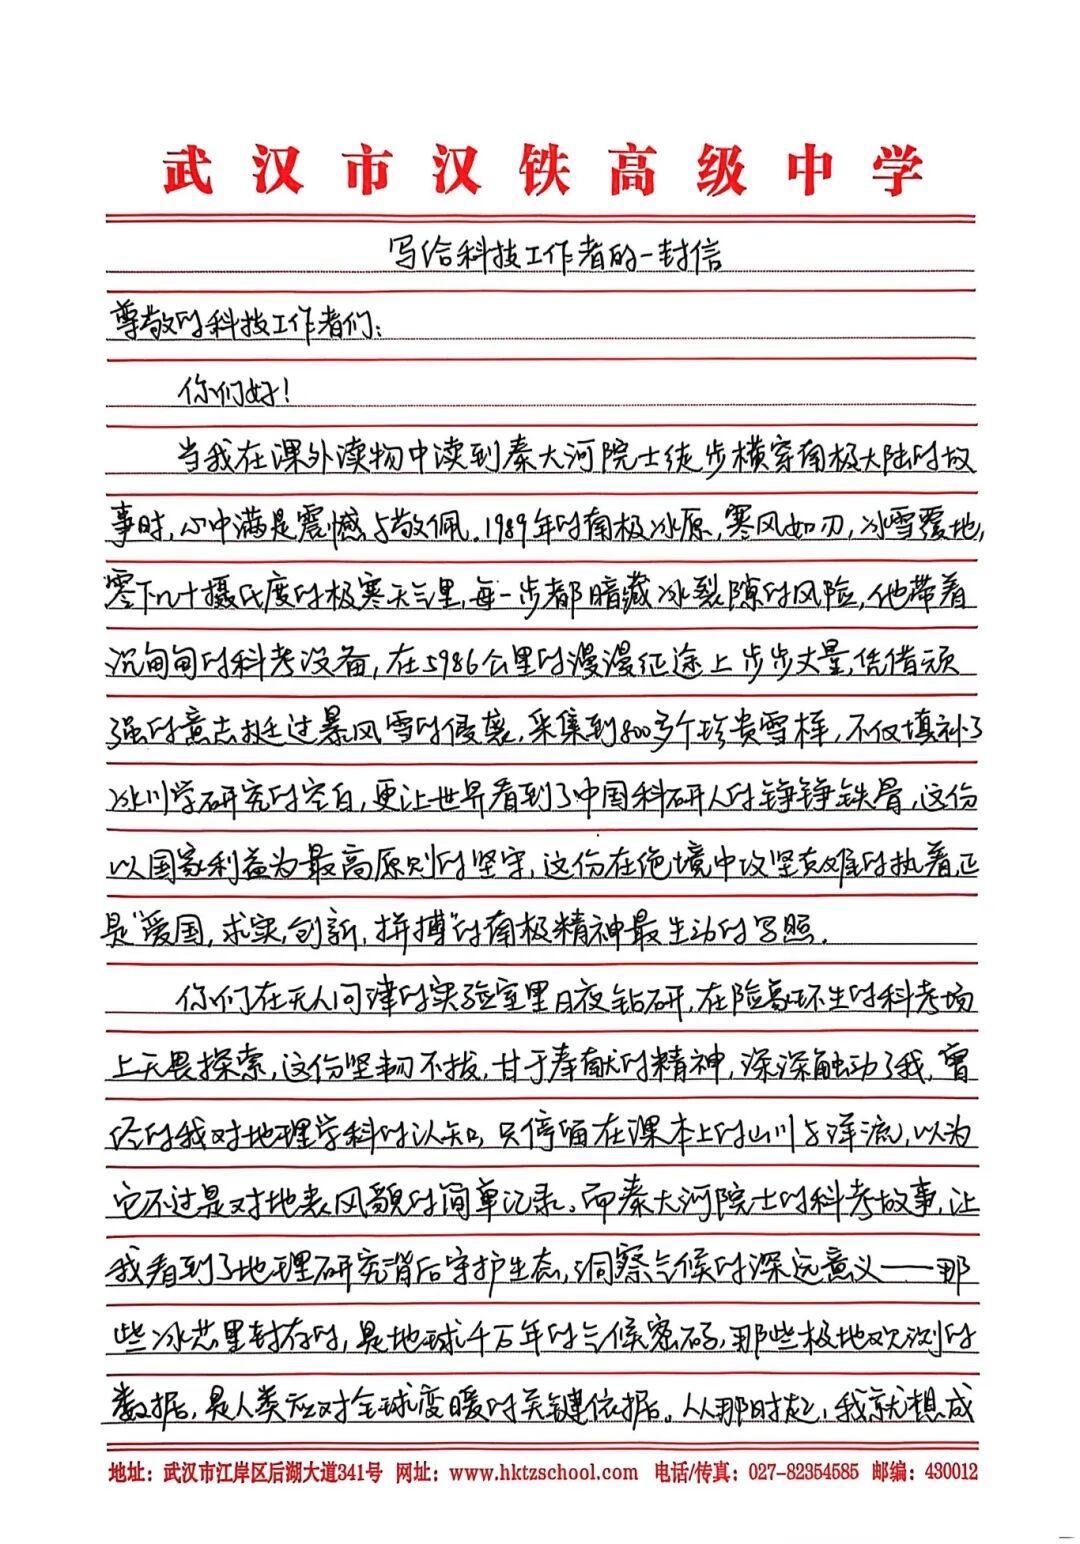 武汉市汉铁高级中学
写给科技工作者的一封信
尊敬的科技工作者们：
你们好！
当我在课外读物中读到秦大河院士徒步横穿南极大陆的故
事时，心中满是震憾与敬佩。1989年的南极冰原，寒风如刃，冰雪覆地，
零下几十摄氏度的极寒天气里，每一步都暗藏冰裂隙的风险，他带着
沉甸甸的科考设备，在5986公里的漫漫征途上步步丈量，凭借顽
强的意志挺过暴风雪的侵袭，采集到800多个珍贵雪样，不仅填补了
冰川学研究的空白，更让世界看到了中国科研人的铮铮铁骨，这份
以国家利益为最高原则的坚守，这份在绝境中攻坚克难的执着，正
是“爱国，求实，创新，拼搏”的南极精神最生动的写照。
你们在无人问津的实验室里日夜钻研，在险象环生的科考场
上无畏探索，这份坚韧不拔，甘于奉献的精神，深深触动了我，曾
经的我对地理学科的认知，只停留在课本上的山川与洋流，以为
它不过是对地表风貌的简单记录。而秦大河院士的科考故事，让
我看到了地理研究背后守护生态，洞察气候的深远意义——那
些冰芯里封存的，是地球千万年的气候密码，那些极地观测的
数据，是人类应对全球变暖的关键依据。从那时起，我就想成
地址：武汉市江岸区后湖大道341号 网址：www.hktzschool.com 电话/传真：027-82354585 邮编：430012